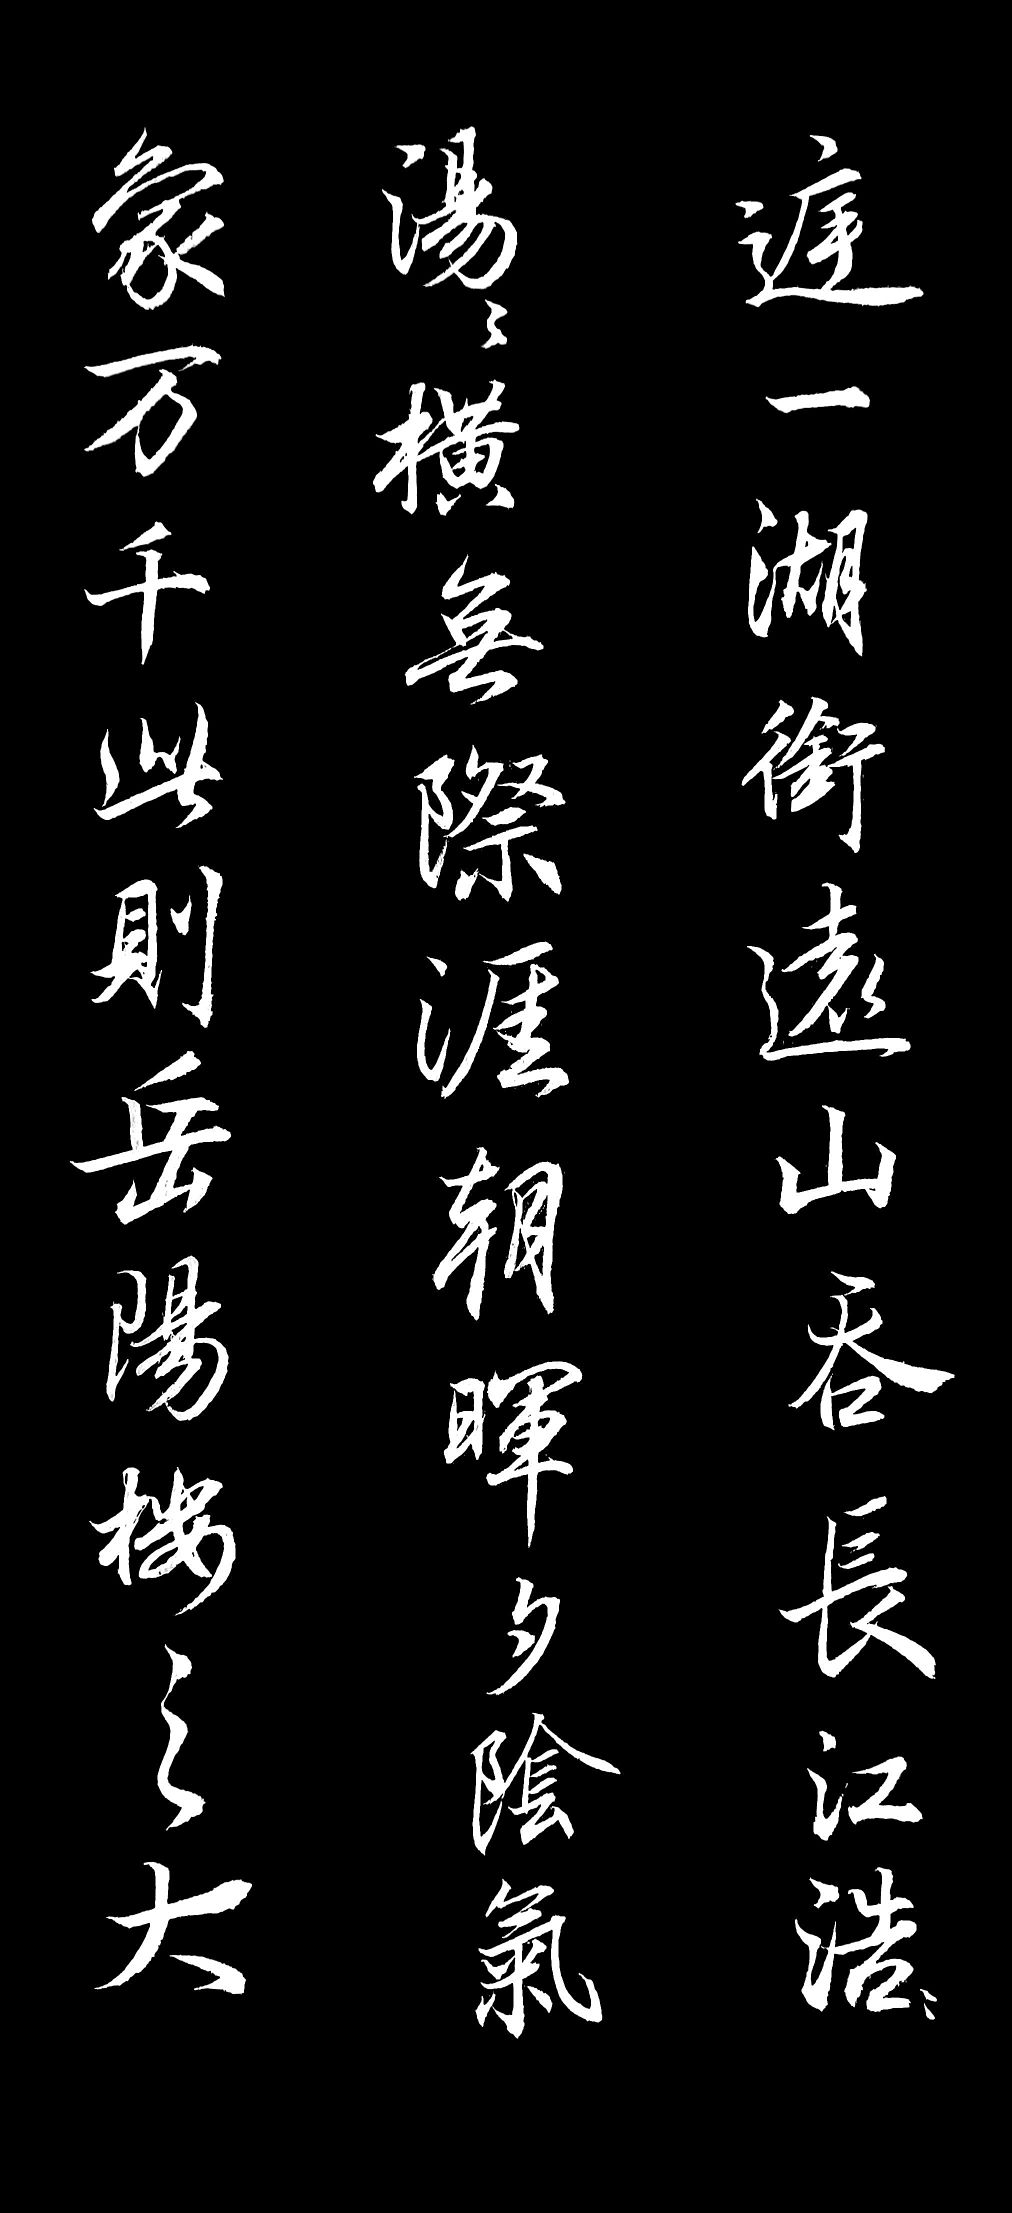 庭一湖銜遠山吞長江浩〻
湯〻橫無際涯朝暉夕陰氣
象万千此則岳陽楼之大